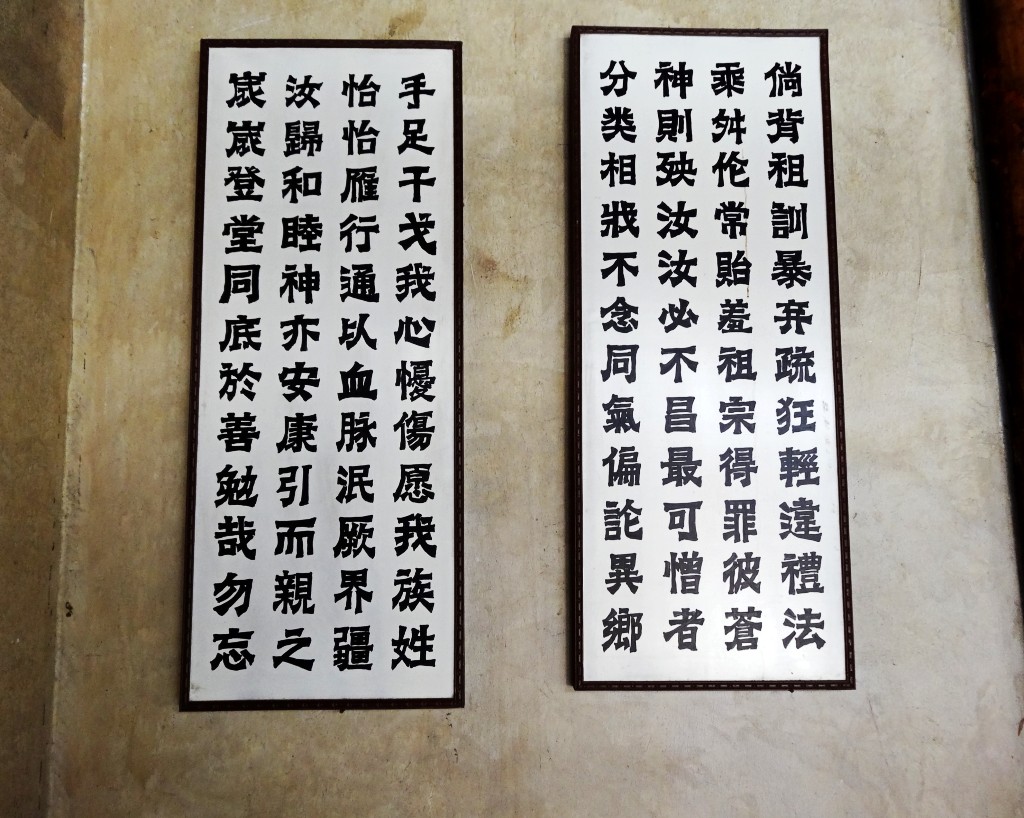 倘背祖訓暴弃疏狂輕違禮法
乘舛伦常貽羞祖宗得罪彼蒼
神則殃汝汝必不昌最可憎者
分类相戕不念同氣偏論異鄉
手足干戈我心憂傷愿我族姓
怡怡雁行通以血脉泯厥界疆
汝歸和睦神亦安康引而親之
歲歲登堂同底於善勉哉勿忘